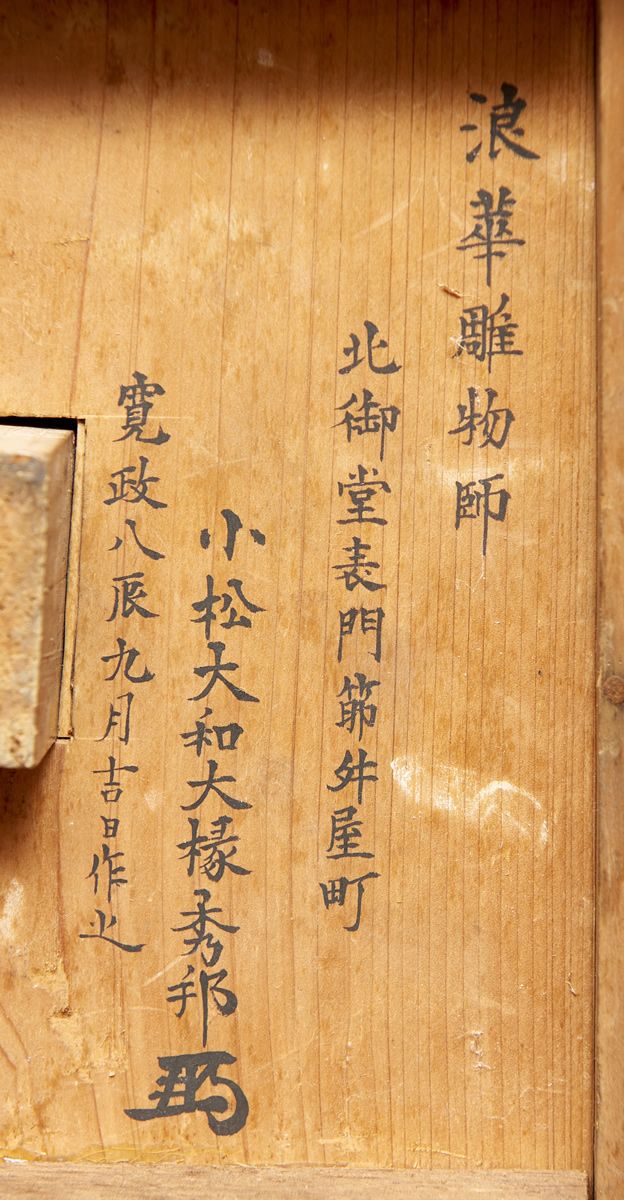 浪華雕物師
北御堂表門筋舛屋町
小松大和大椽秀邦
寛政八辰九月吉日作之